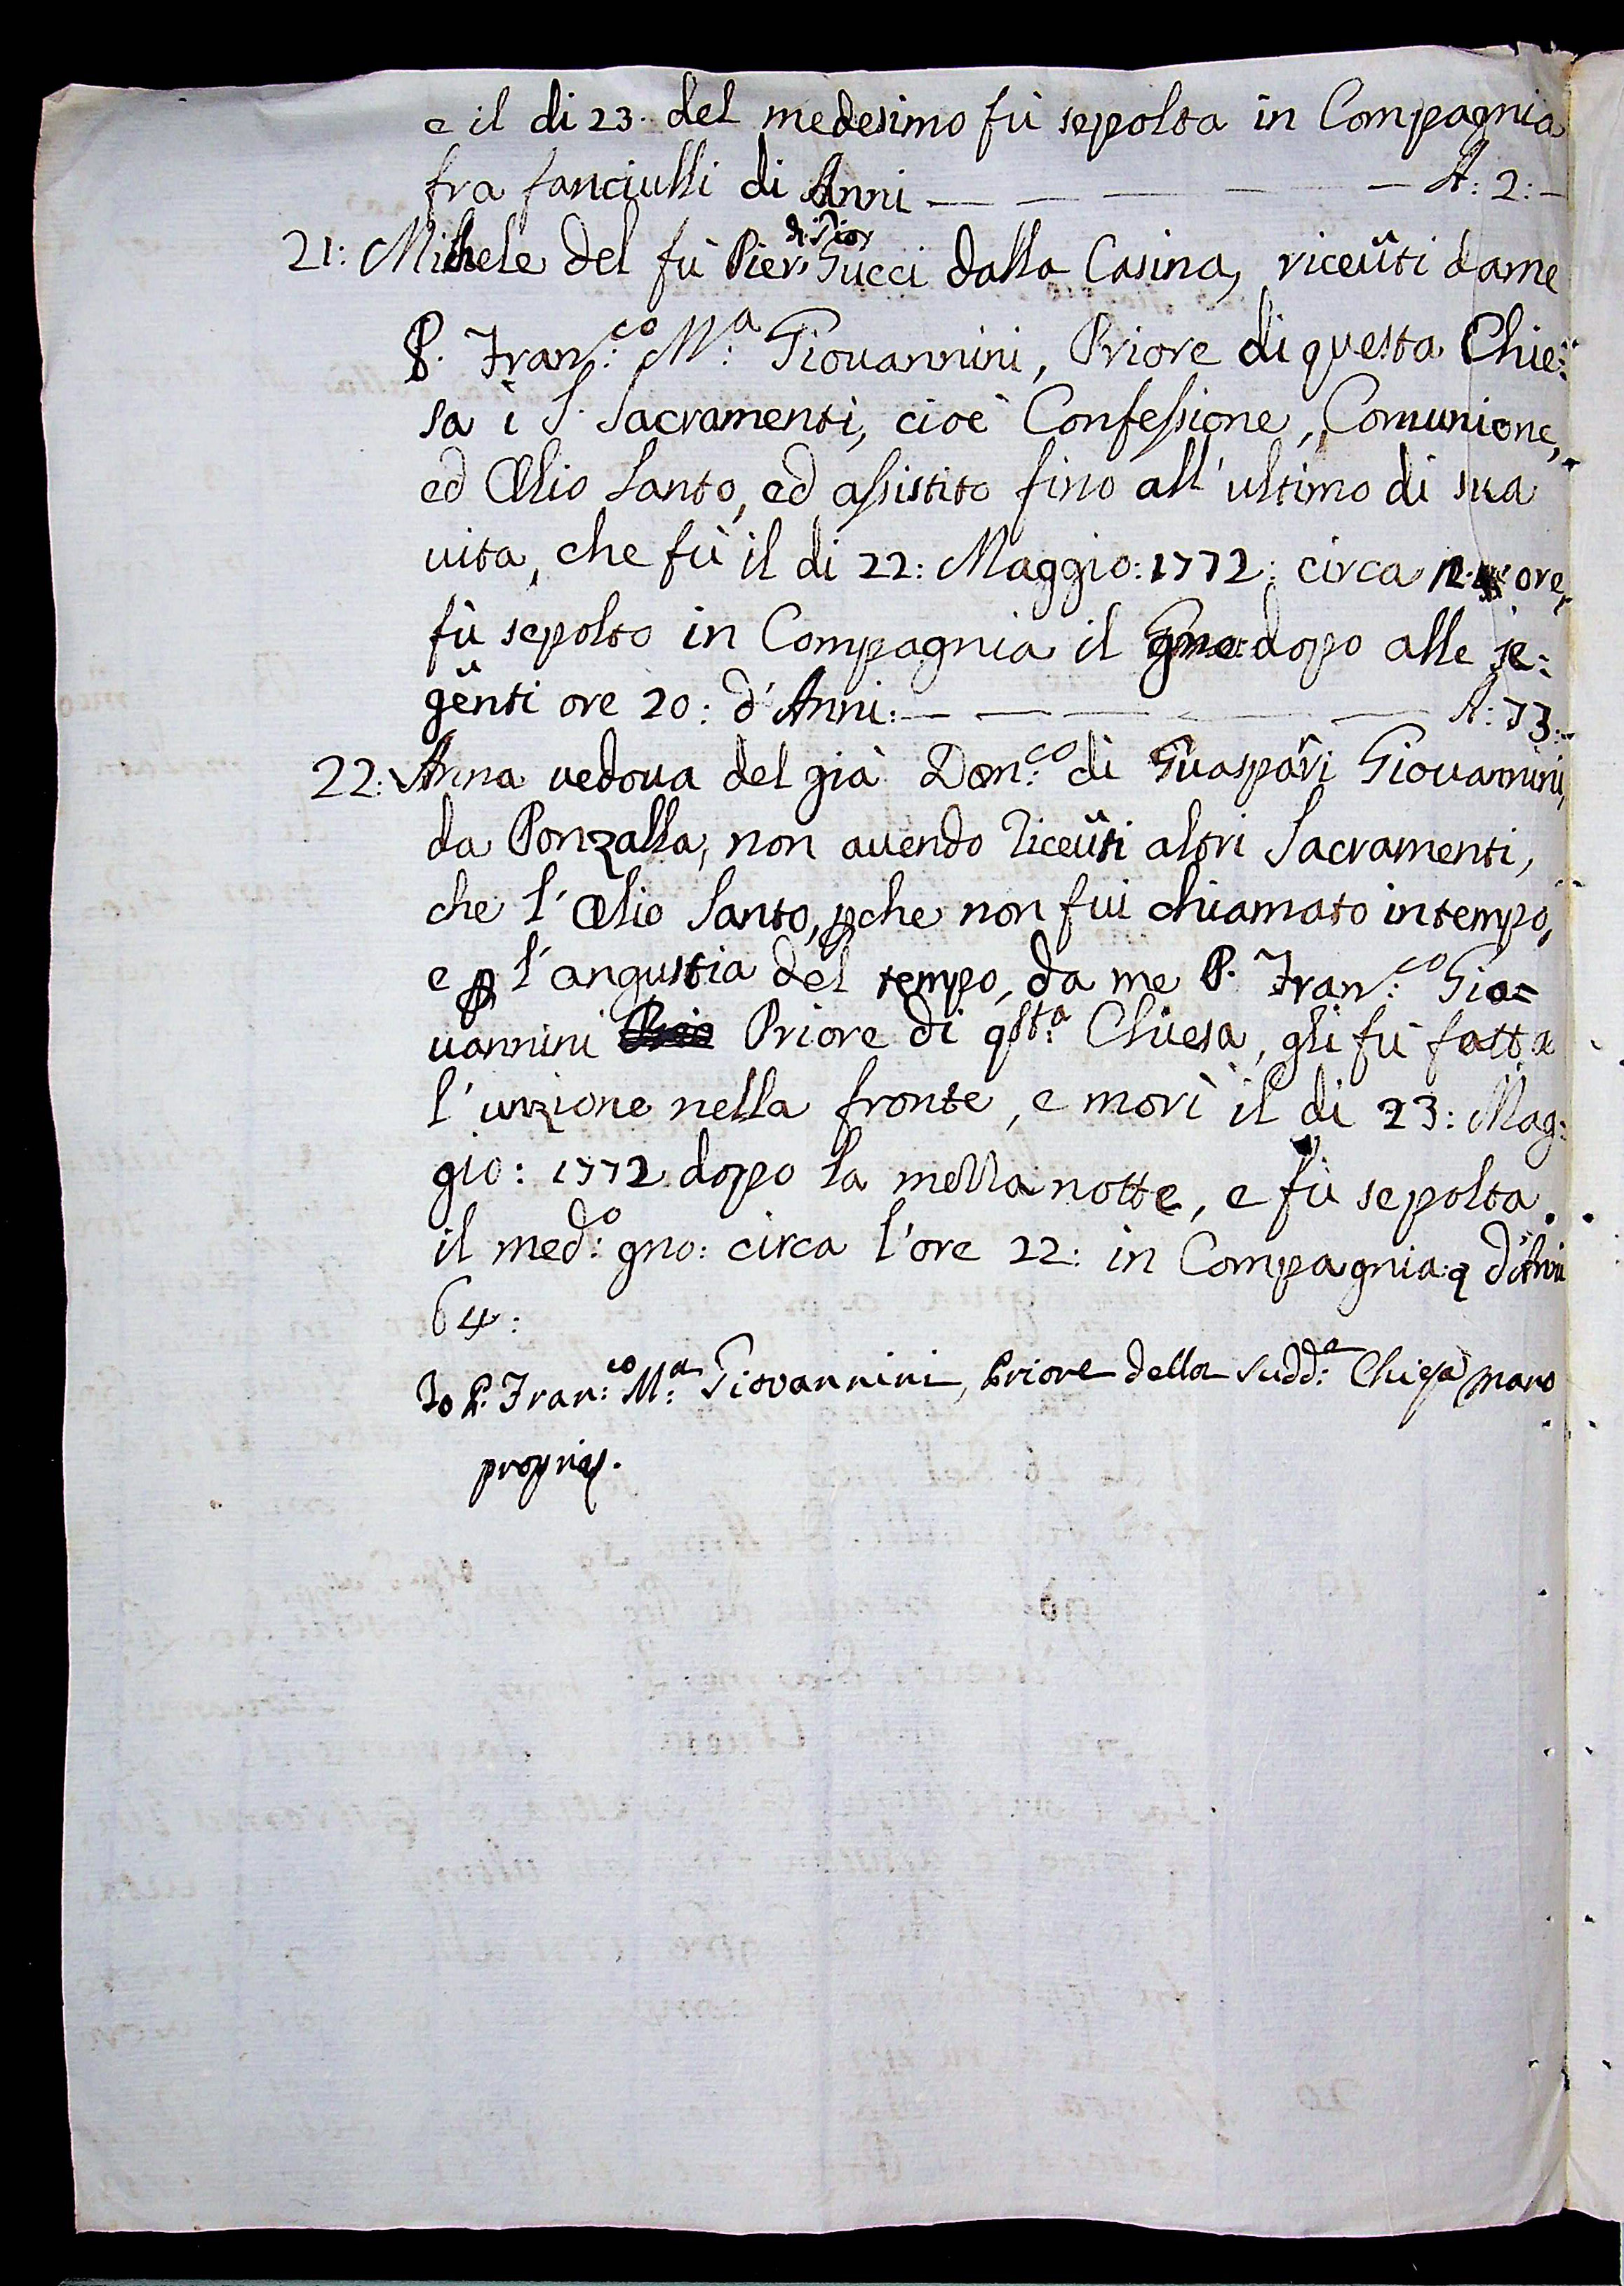 e il di 23. del medesimo fù sepolta in Compagnia
fra fanciulli di Anni — — — — — A: 2: —
21: Michele del fù Pier di Pier Gucci dalla Casina, riceuti da me
P. Fran:co M:a Giouannini, Priore di questa Chie:
sa i S. Sacramenti, cioè Confessione, Comunione,
ed Olio Santo, ed assistito fino all'ultimo di sua
uita, che fù il di 22: Maggio: 1772: circa 12 ore,
fù sepolto in Compagnia il gno: dopo alle se:
guenti ore 20: d'Anni: — — — — — A: 73:
22: Anna uedoua del già Dom:co di Guaspari Giouannini,
da Ponzalla, non auendo riceuti altri Sacramenti,
che l'Olio Santo, pche non fui chiamato in tempo,
e p l'angustia del tempo, da me P. Fran:co Gio=
uannini Priore di qst:a Chiesa, gli fù fatta
l'unzione nella fronte, e morì il di 23: Mag:
gio: 1772 dopo la mezza notte, e fù sepolta
il med:o gno: circa l'ore 22: in Compagnia: d'Anni
64:
Io P. Fran:co M:a Giovannini, Priore della Sudd:a Chiesa mano
propria.